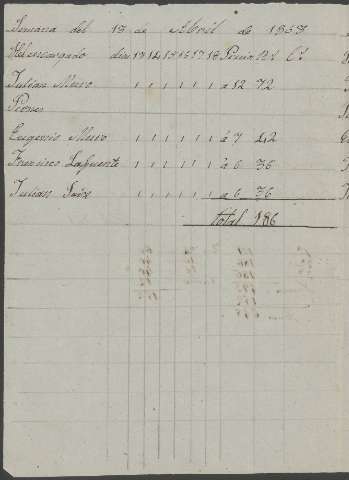 Semana del 13 de Abril de 1868
El encargado dias 13 14 15 16 17 18 Precio Rs Cs
Julian Muro 1 1 1 1 1 1 a 12 72
Peones
Eugenio Muro 1 1 1 1 1 1 á 7 42
Francisco Lafuente 1 1 1 1 1 1 á 6 36
Julian 1 1 1 1 1 1 a 6 36
total 186